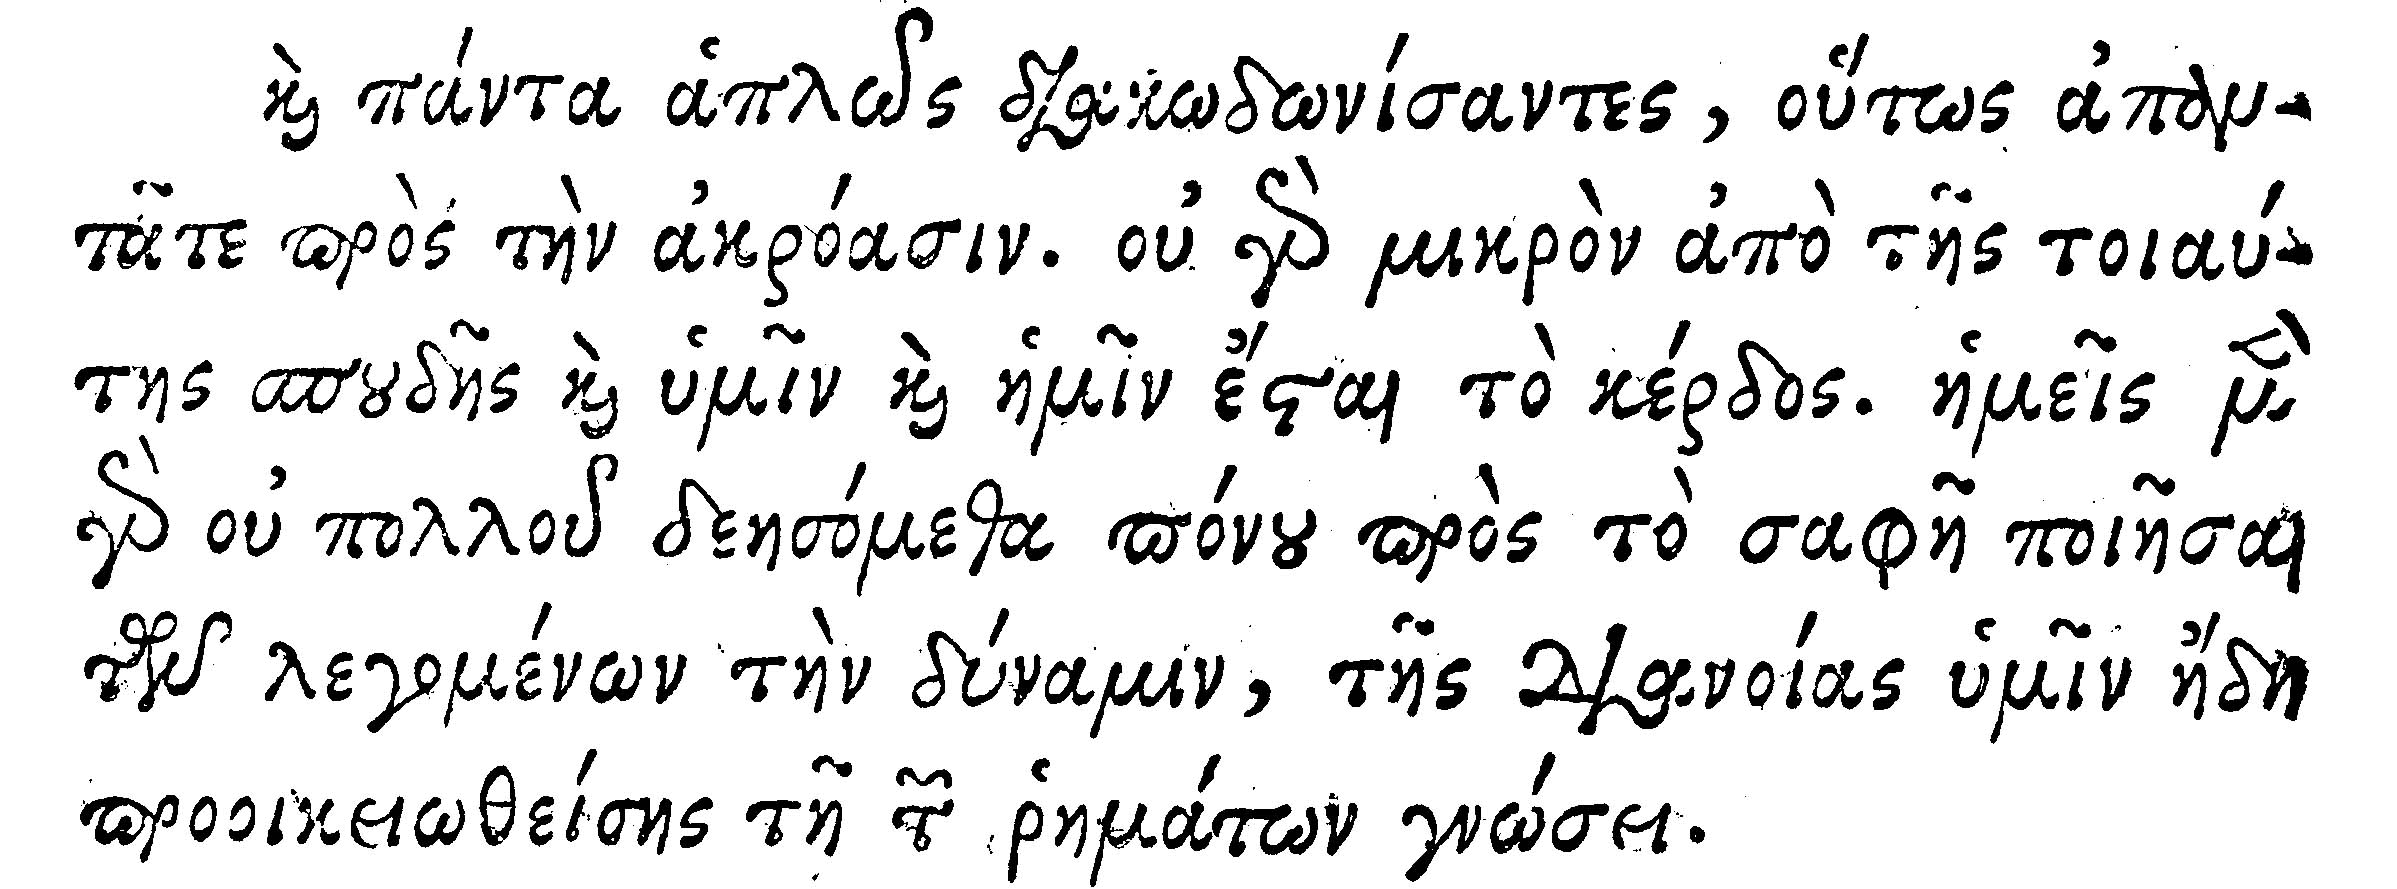 καὶ πάντα ἁπλῶς διακωδωνίσαντες, οὕτως ἀπαν-
τᾶτε πρὸς τὴν ἀκρόασιν. οὐ γὰρ μικρὸν ἀπὸ τῆς τοιαύ-
της σπουδῆς καὶ ὑμῖν καὶ ἡμῖν ἔσται τὸ κέρδος. ἡμεῖς μὲν
γὰρ οὐ πολλοῦ δεησόμεθα πόνου πρὸς τὸ σαφῆ ποιῆσαι
τῶν λεγομένων τὴν δύναμιν, τῆς διανοίας ὑμῖν ἤδη
προοικειωθείσης τῇ τῶν ῥημάτων γνώσει.